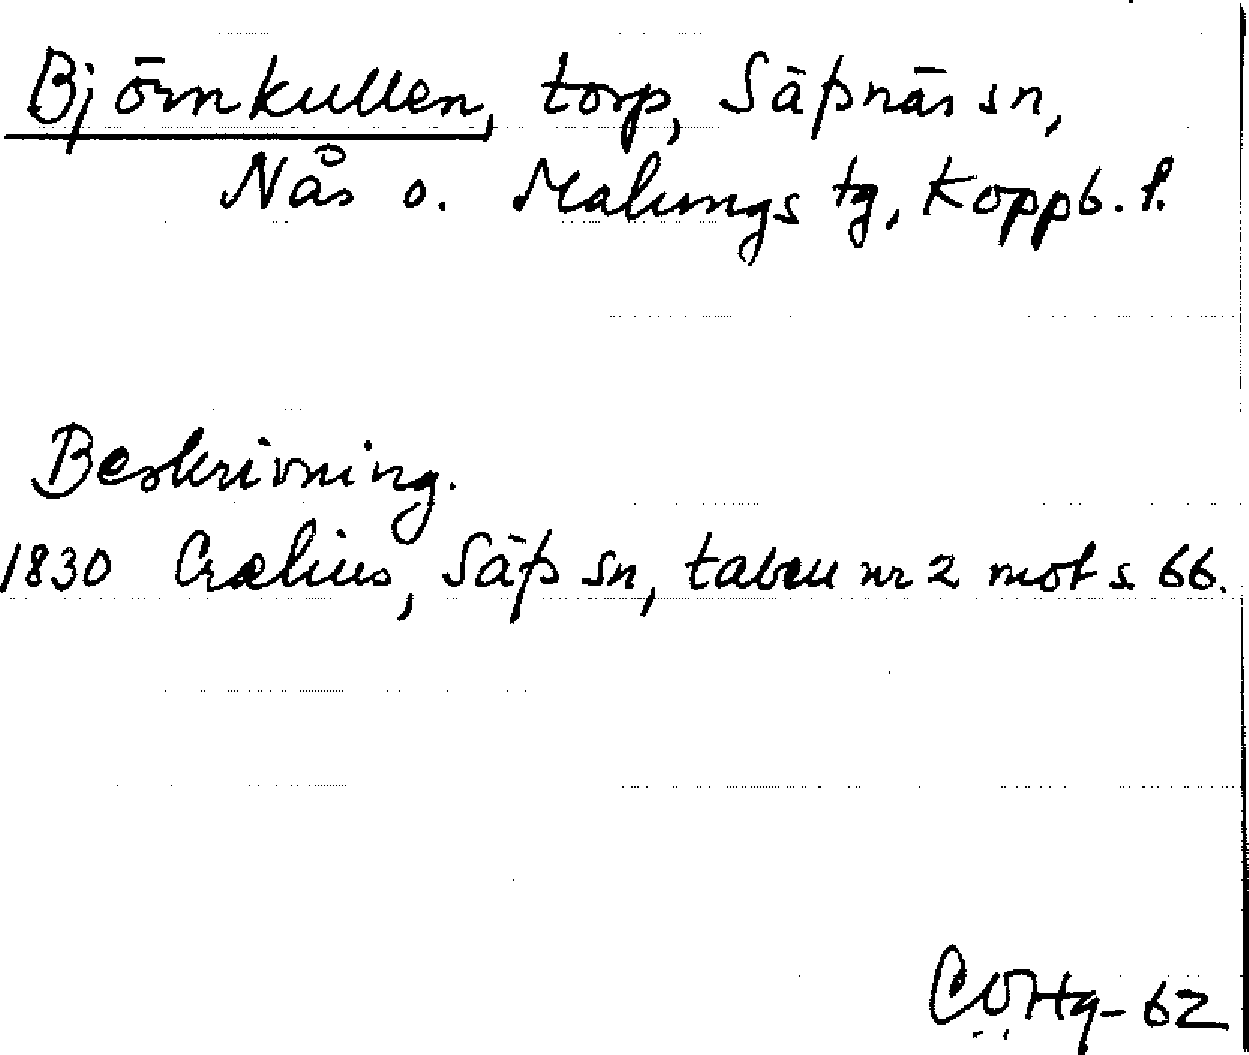 Björnkullen, torp, Säfsnäs sn,
Nås o. Malungs tg, Koppb. l.
Beskrivning.
1830 Crælius, Säfs sn, tabell nr 2 mot s. 66.